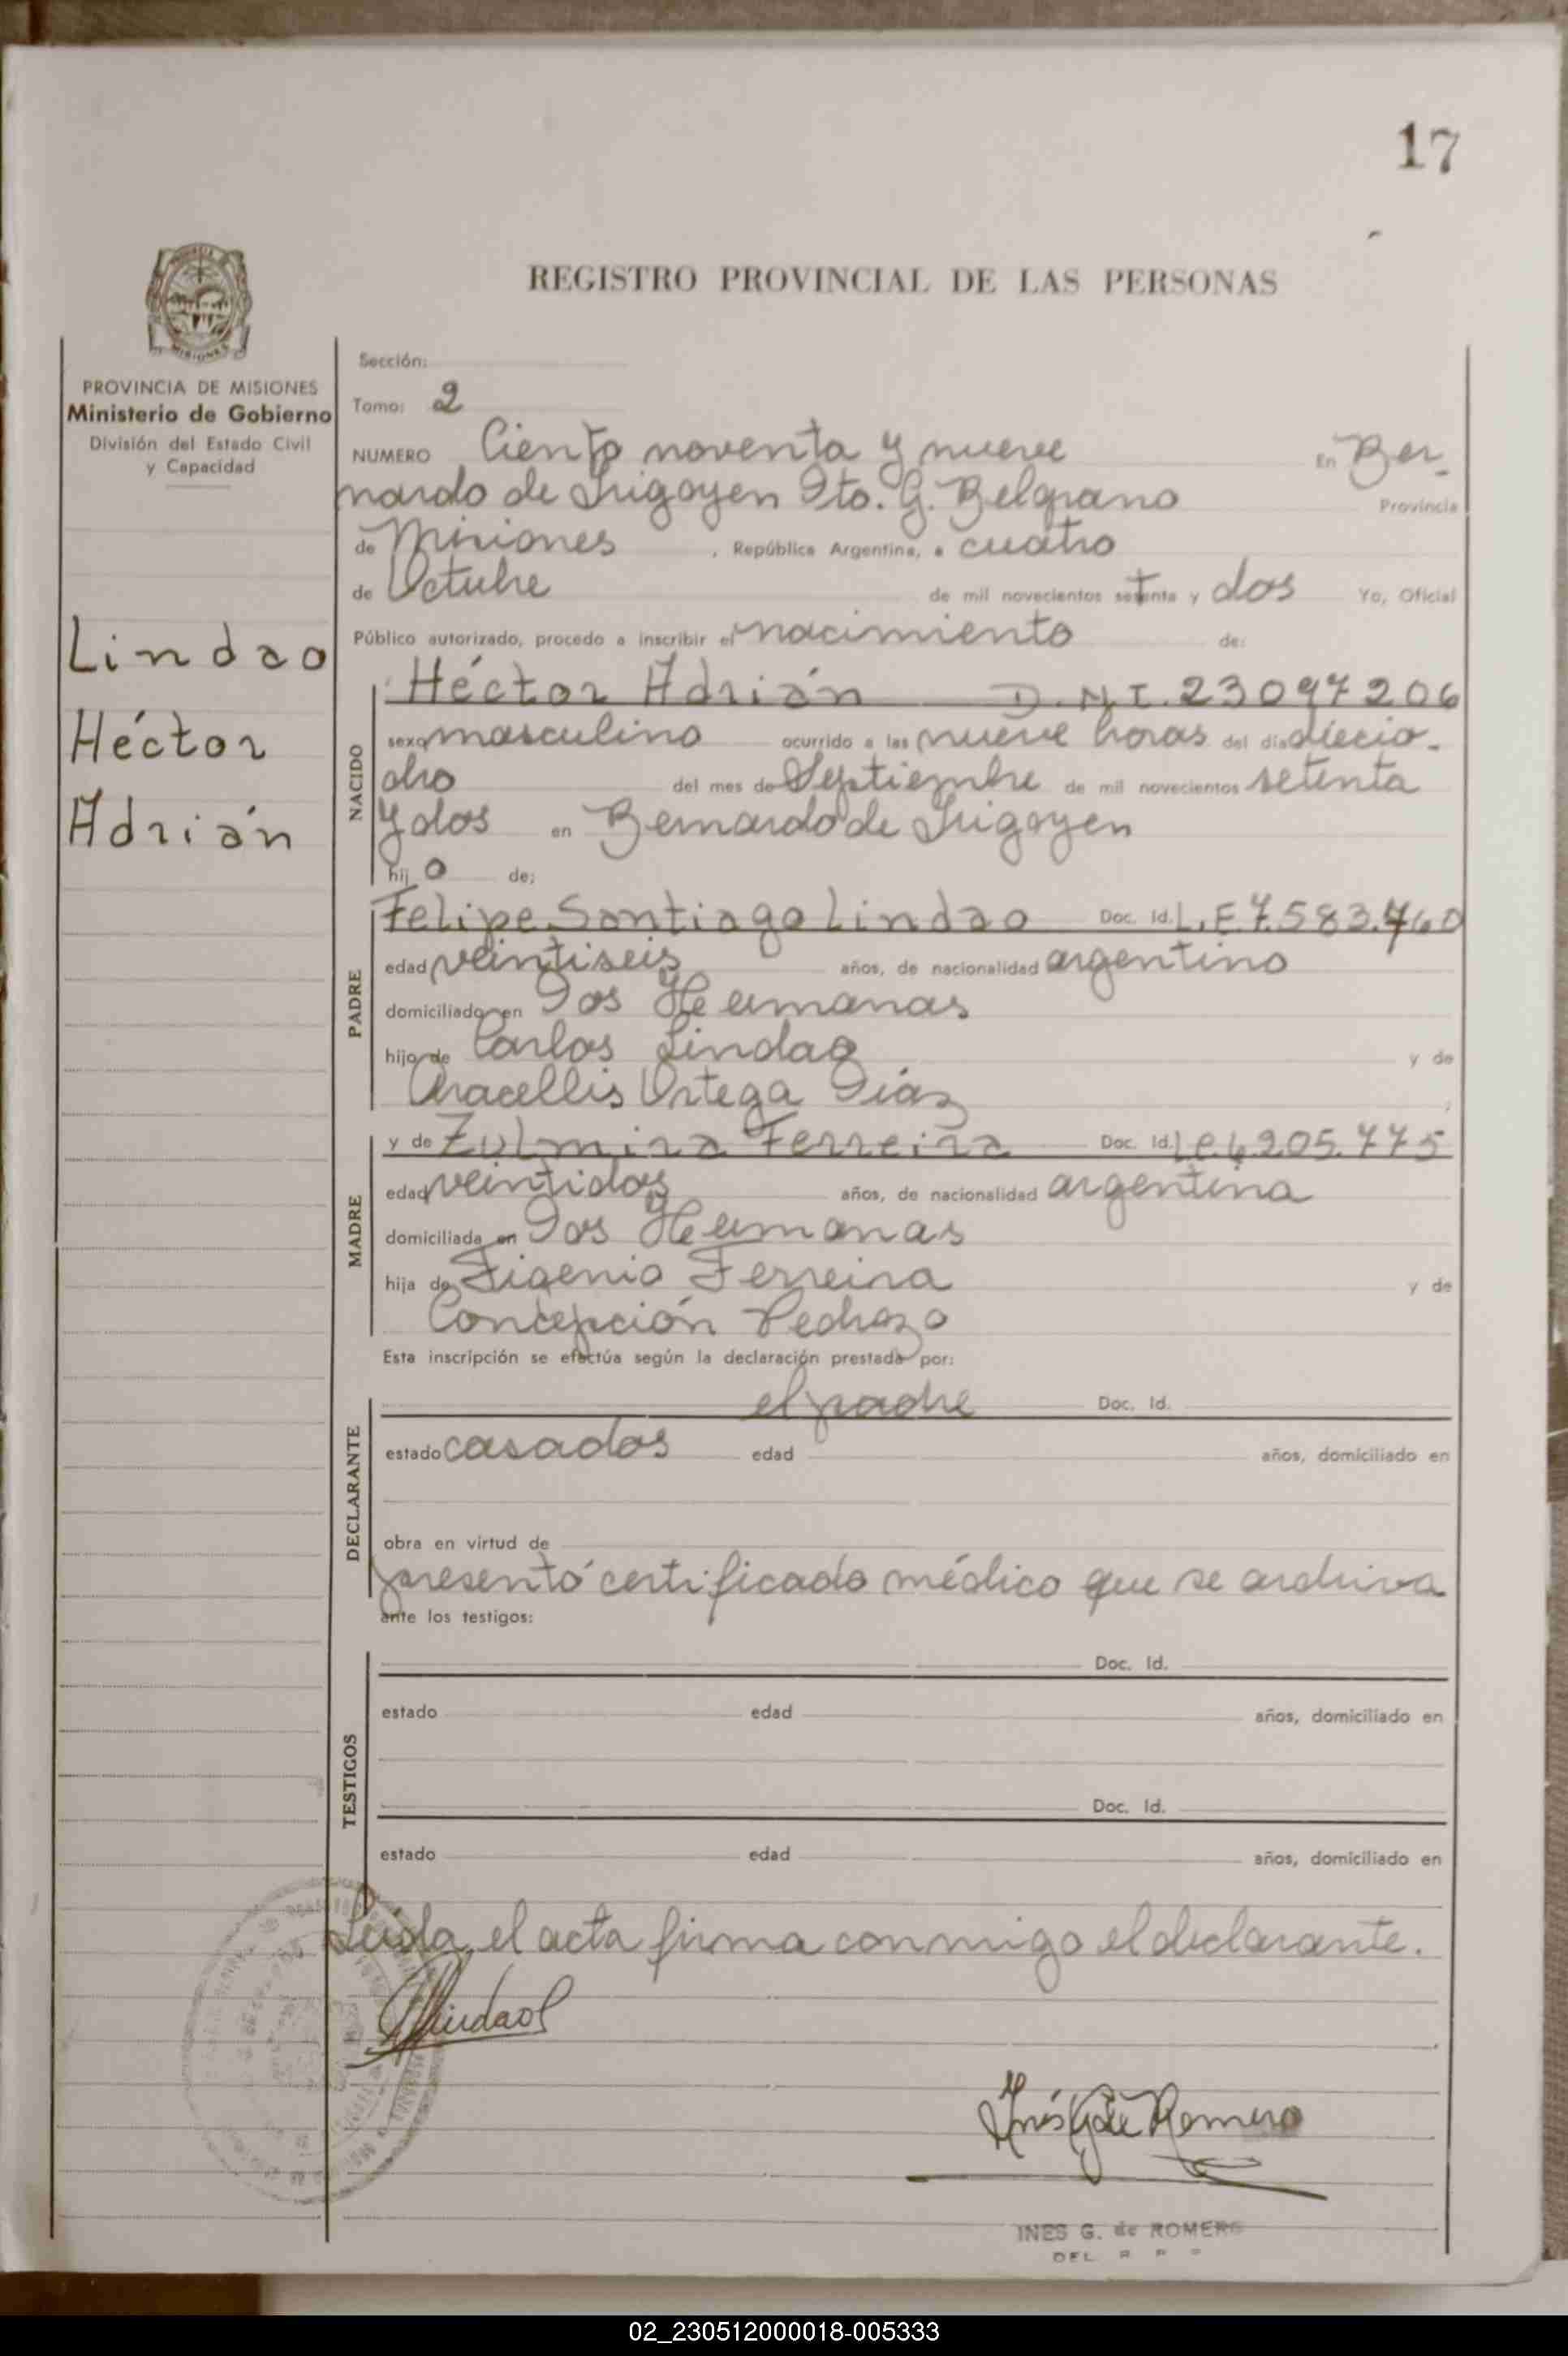 17
REGISTRO PROVINCIAL DE LAS PERSONAS
MISIONES
PROVINCIA DE MISIONES
Ministerio de Gobierno
División del Estado Civil
y Capacidad
Lindao
Héctor
Adrián
Sección:
Tomo: 2
NUMERO Ciento noventa y nueve En Ber-
nardo de Irigoyen Dto. G. Belgrano Provincia
de Misiones , República Argentina, a cuatro
de Octubre de mil novecientos setenta y dos Yo, Oficial
Público autorizado, procedo a inscribir el nacimiento de:
NACIDO
Héctor Adrián D.N.I. 23097206
sexo masculino ocurrido a las nueve horas del día diecio-
cho del mes de Septiembre de mil novecientos setenta
y dos en Bernardo de Irigoyen
hij o de;
PADRE
Felipe Santiago Lindao Doc. Id. L.E 7.583.760
edad veintiseis años, de nacionalidad argentino
domiciliado en Dos Hermanas
hijo de Carlos Lindao y de
Aracellis Ortega Diáz
MADRE
y de Zulmira Ferreira Doc. Id. L.C. 6.205.775
edad veintidos años, de nacionalidad argentina
domiciliada en Dos Hermanas
hija de Figenio Ferreira y de
Concepción Pedrozo
Esta inscripción se efectúa según la declaración prestada por:
DECLARANTE
el padre Doc. Id.
estado casados edad años, domiciliado en
obra en virtud de
presentó certificado médico que se archiva
ante los testigos:
TESTIGOS
Doc. Id.
estado edad años, domiciliado en
Doc. Id.
estado edad años, domiciliado en
Leída, el acta firma conmigo el declarante.
Lindao
Inés G de Romero
INES G. de ROMERO
DEL R P P
02_230512000018-005333